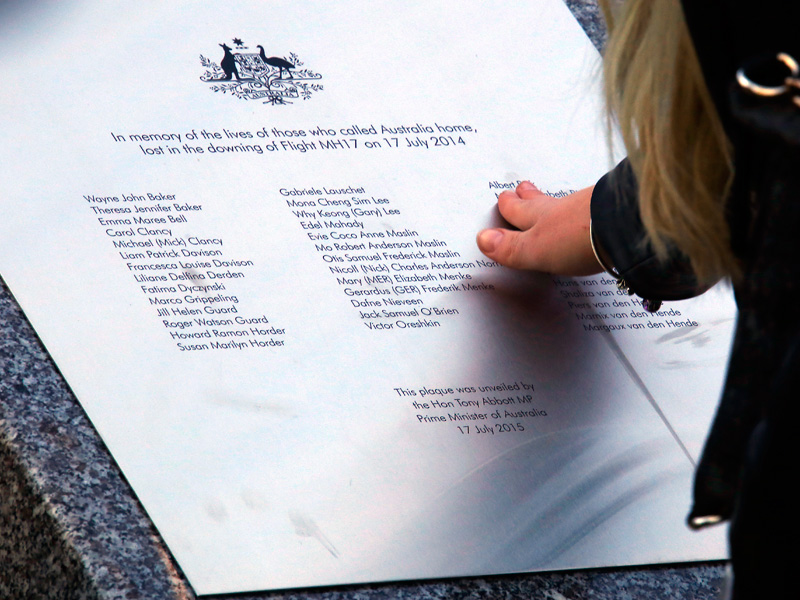 In memory of the lives of those who called Australia home,
lost in the downing of Flight MH17 on 17 July 2014
Wayne John Baker
Theresa Jennifer Baker
Emma Maree Bell
Carol Clancy
Michael (Mick) Clancy
Liam Patrick Davison
Francesca Louise Davison
Liliane Derden
Fatima Dyczynski
Marco Grippeling
Jill Helen Guard
Roger Watson Guard
Howard Ramon Horder
Susan Marilyn Horder
Gabriele Lauschet
Mona Cheng Sim Lee
Why Keong (Gary) Lee
Edel Mahady
Evie Coco Anne Maslin
Mo Robert Anderson Maslin
Otis Samuel Frederick Maslin
Nicoll (Nick) Charles Anderson
Mary (MER) Elizabeth Menke
Gerardus (GER) Frederik Menke
Dafne Nieveen
Jack Samuel O'Brien
Victor Oreshkin
Albert
van den
Piers van den
Marnix van den Hende
Margaux van den Hende
This plaque was unveiled by
the Hon Tony Abbott MP
Prime Minister of Australia
17 July 2015